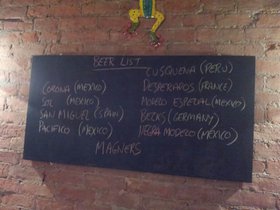 BEER LIST
CUSQUENA (PERU)
CORONA (MEXICO)
DESPERADOS (FRANCE)
SOL (MEXICO)
MODELO ESPECIAL (MEXICO)
SAN MIGUEL (SPAIN)
BECKS (GERMANY)
PACIFICO (MEXICO)
NEGRA MODELO (MEXICO)
MAGNERS